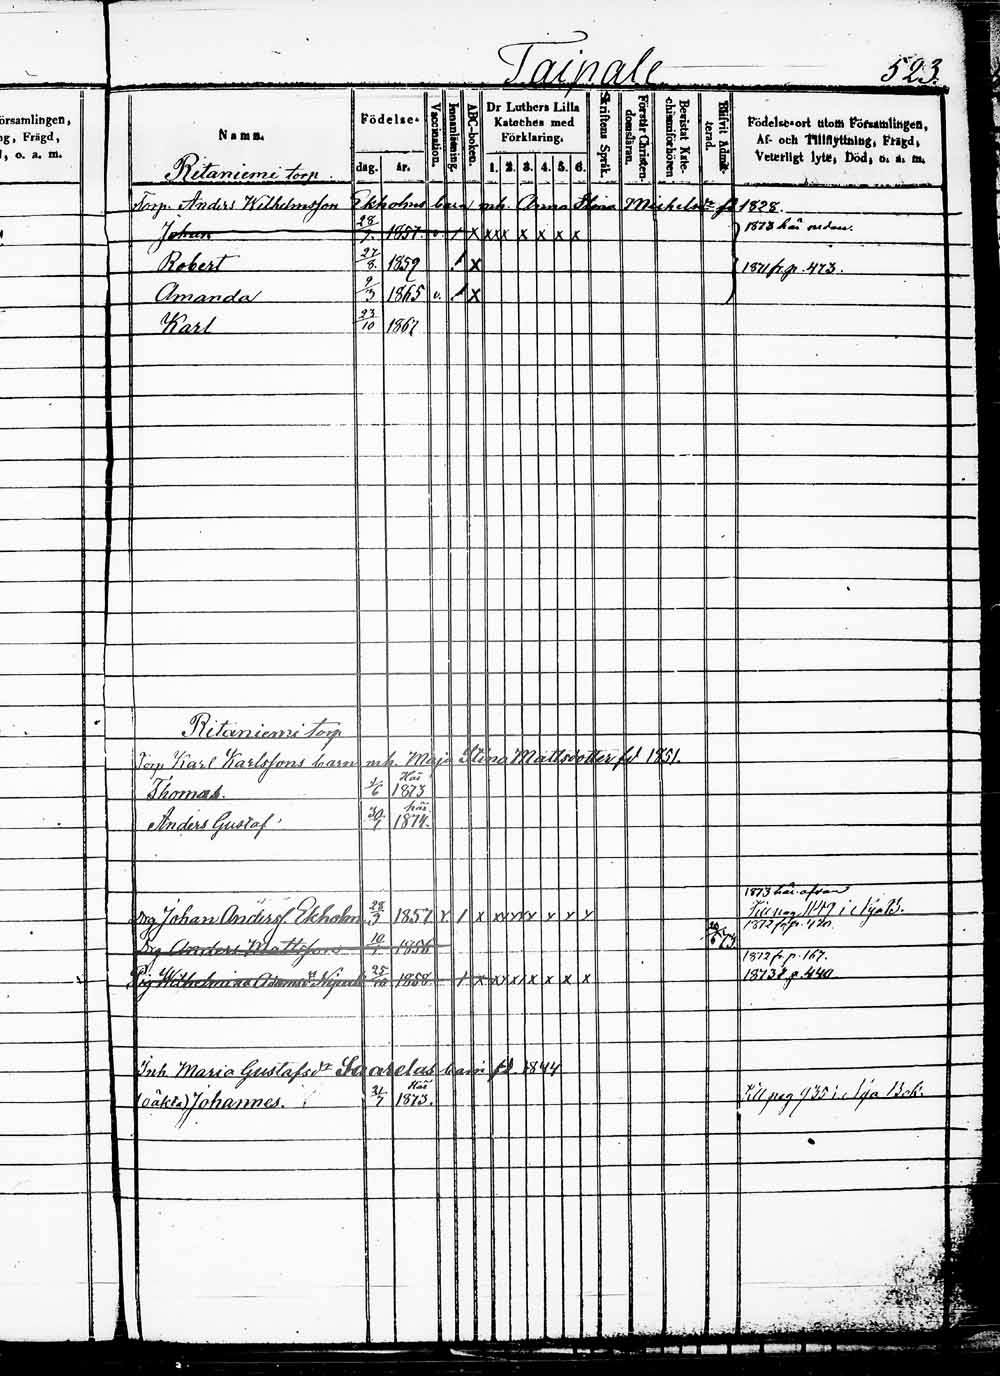 Taipale
523.
örsamlingen,
ng, Frägd,
l, o. a. m.
Namn.
Födelse-
dag.
år.
Vaccination.
Innanläsning.
ABC-boken.
Dr Luthers Lilla
Kateches med
Förklaring.
1. 2. 3. 4. 5. 6.
Skriftens Språk.
Förstår Christen-
domsläran.
Bevistat Kate-
chismiförhören
Blifvit Admit-
terad.
Födelse-ort utom Församlingen,
Af- och Tillflyttning, Frägd,
Veterligt lyte, Död, o. a. m.
Ritaniemi torp.
Torp. Anders Wilhelmsson Ekholms barn mh. Anna Stina Michelsdr fd 1828.
Johan 28/7. 1857. v / x xxx x x x x 1873 här nedan.
Robert 27/8. 1859 / x 1871 fr. p. 473.
Amanda 9/3 1865 v. / x
Karl 23/10 1867
Ritaniemi torp
Torp Karl Karlssons barn mh. Maja Stina Mattsdotter fd 1851.
Thomas. 1/6 Här 1873
Anders Gustaf 30/7 här 1874.
1873 här ofvan
Drg Johan Anderss. Ekholm 28/7 1857 v / x Till pag 1149 i Nya B.
Drg Anders Mattsson 10/1 1856
1872 fr. p. 167.
Pig Wilhelmina Adamsdr 25/10 1858. / x 1873 t. p. 440
Inh. Maria Gustafsdr Saarelas barn fd. 1844
(oäkta) Johannes. 31/7 Här 1873. Till pag 935 i Nya Bok.